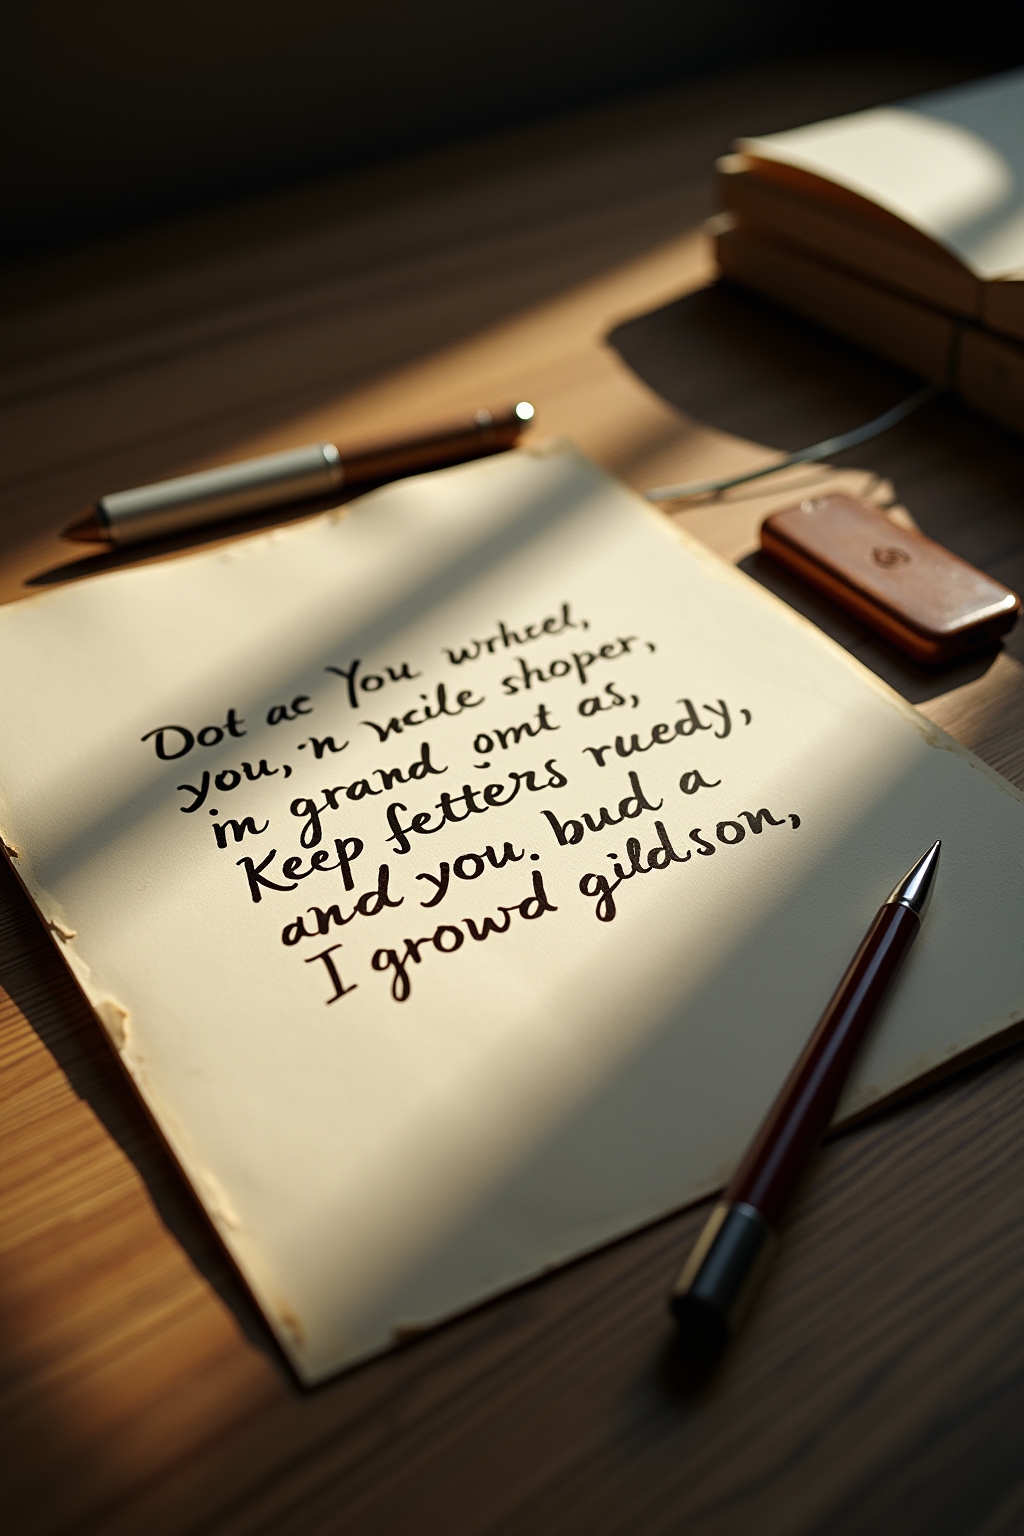 Dot ac You wrhcel,
you, 'n ncile shoper,
in grand omt as,
Keep fetters ruedy,
and you. bud a
I growd gildson,